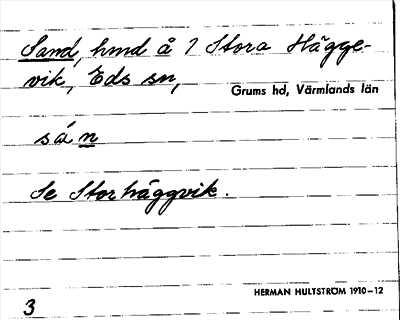 Sand, hmd å 1 Stora Hägge-
vik, Eds sn,
Grums hd, Värmlands län
sá n
Se Storhäggvik.
HERMAN HULTSTRÖM 1910–12
3